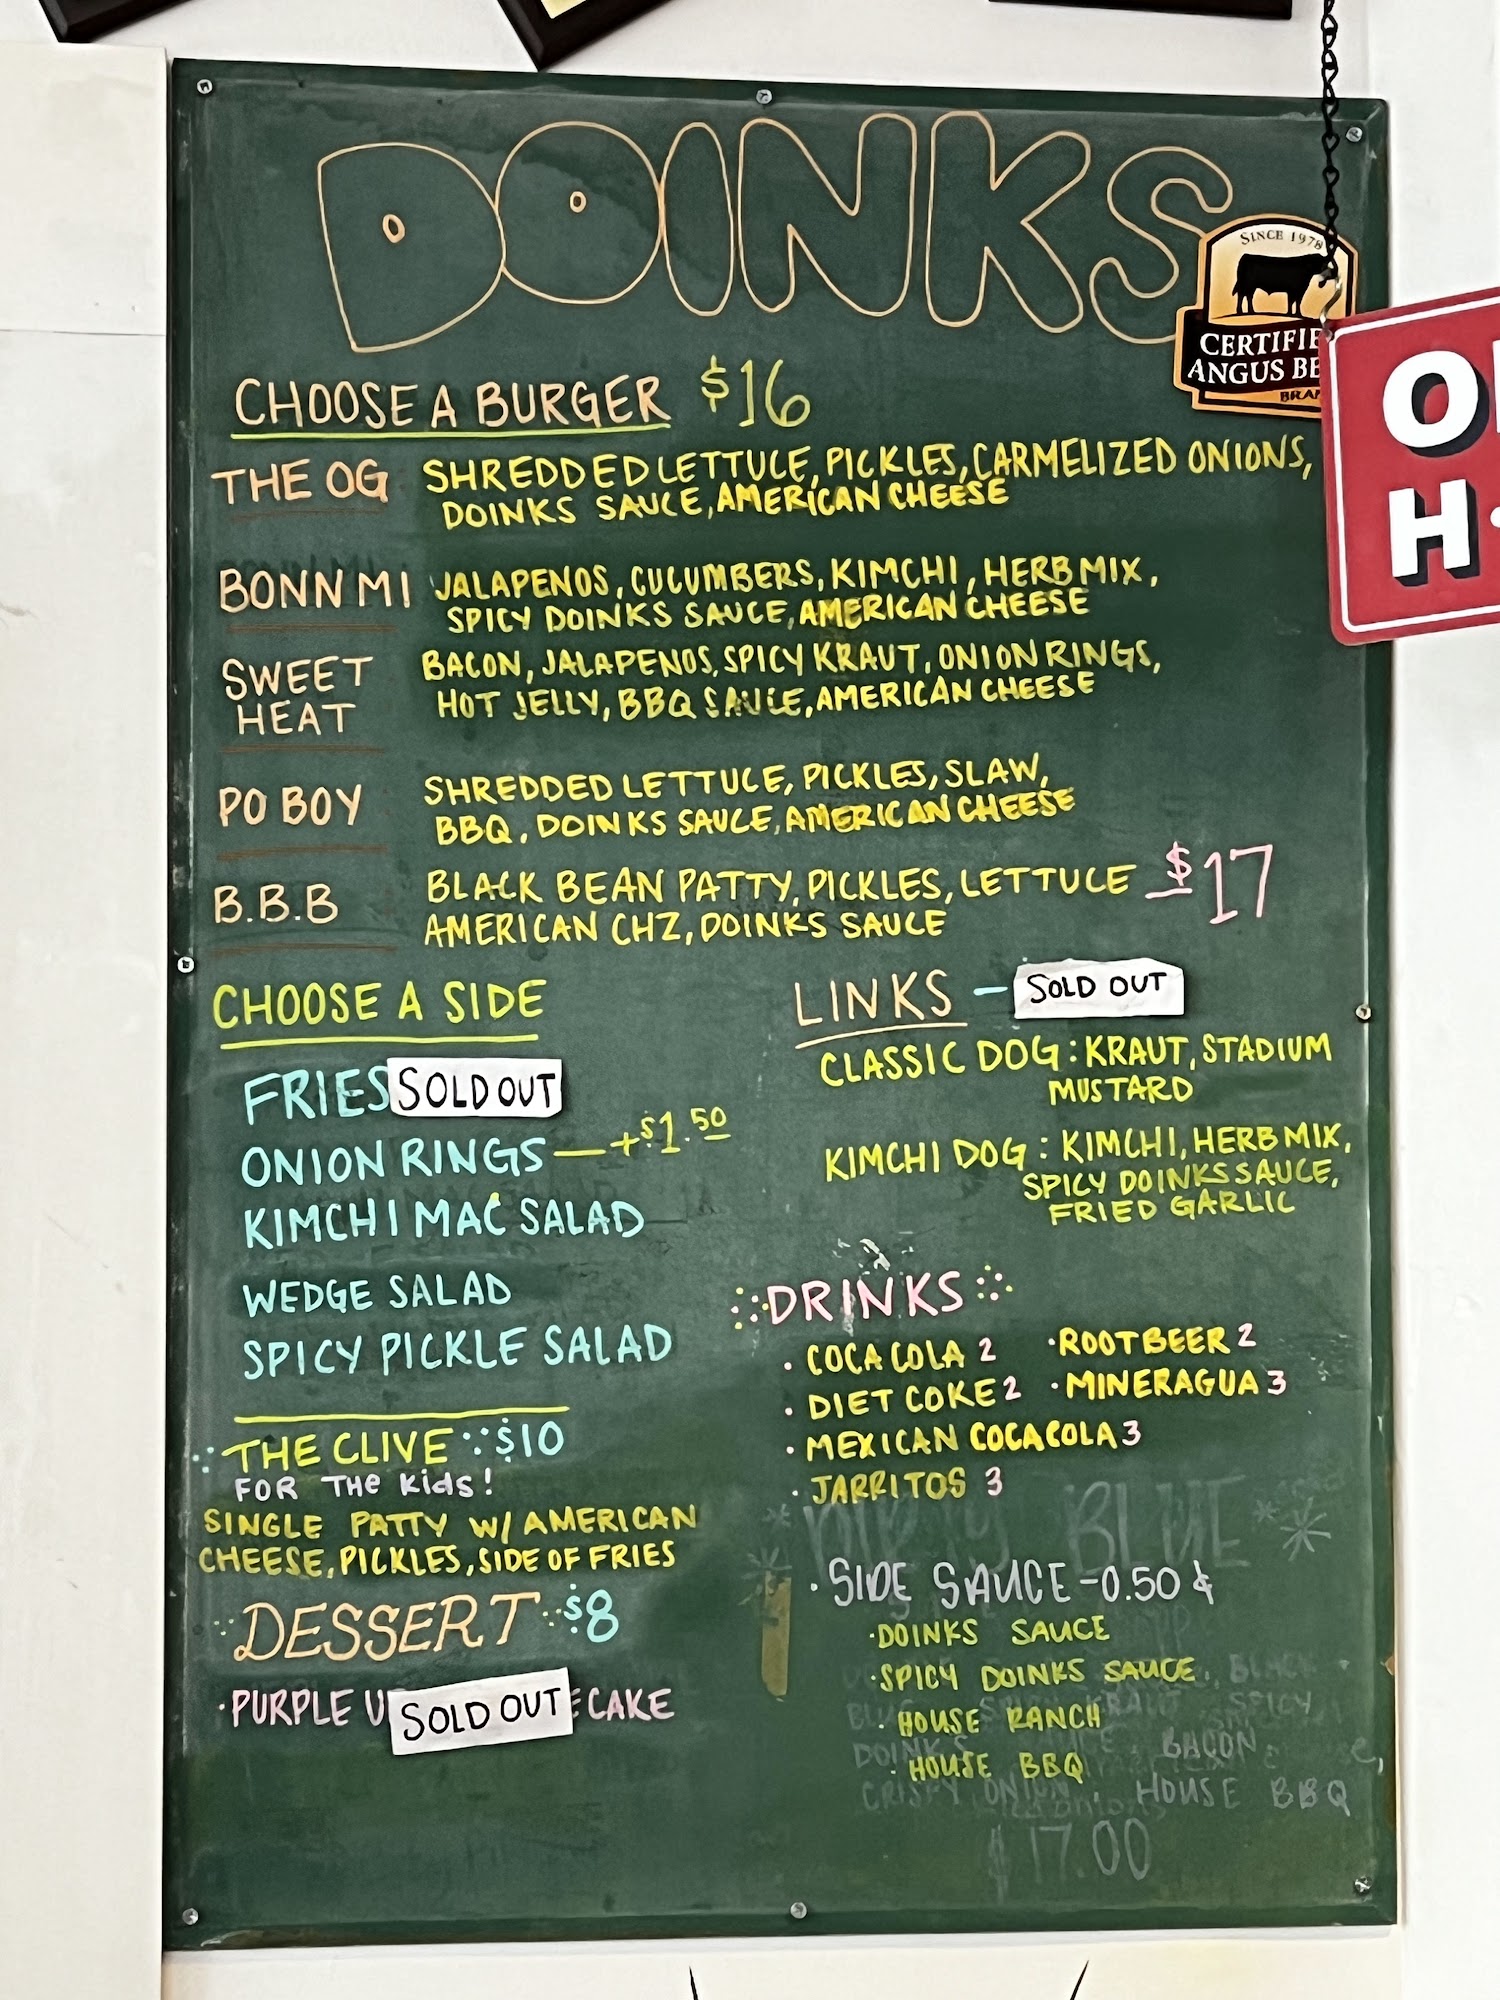 DOINKS
SINCE 1978
CERTIFIE
ANGUS BE
BRAN
O
H
CHOOSE A BURGER $16
THE OG SHREDDED LETTUCE, PICKLES, CARMELIZED ONIONS,
DOINKS SAUCE, AMERICAN CHEESE
BONN MI JALAPENOS, CUCUMBERS, KIMCHI, HERB MIX,
SPICY DOINKS SAUCE, AMERICAN CHEESE
SWEET HEAT BACON, JALAPENOS, SPICY KRAUT, ONION RINGS,
HOT JELLY, BBQ SAUCE, AMERICAN CHEESE
PO BOY SHREDDED LETTUCE, PICKLES, SLAW,
BBQ, DOINKS SAUCE, AMERICAN CHEESE
B.B.B BLACK BEAN PATTY, PICKLES, LETTUCE $17
AMERICAN CHZ, DOINKS SAUCE
CHOOSE A SIDE
FRIES SOLD OUT
ONION RINGS — +$1.50
KIMCHI MAC SALAD
WEDGE SALAD
SPICY PICKLE SALAD
THE CLIVE $10
FOR THE KidS!
SINGLE PATTY W/ AMERICAN
CHEESE, PICKLES, SIDE OF FRIES
DESSERT $8
·PURPLE U SOLD OUT ECAKE
LINKS - SOLD OUT
CLASSIC DOG: KRAUT, STADIUM
MUSTARD
KIMCHI DOG: KIMCHI, HERB MIX,
SPICY DOINKS SAUCE,
FRIED GARLIC
DRINKS
· COCA COLA 2 · ROOTBEER 2
· DIET COKE 2 · MINERAGUA 3
· MEXICAN COCACOLA 3
· JARRITOS 3
BLUE
· SIDE SAUCE - 0.50¢
· DOINKS SAUCE
· SPICY DOINKS SAUCE
· HOUSE RANCH
· HOUSE BBQ
BACON
CRISPY ONION, HOUSE BBQ
$17.00